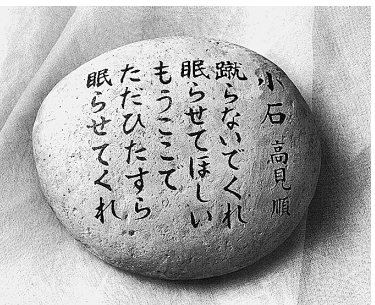 小石 高見順
蹴らないでくれ
眠らせてほしい
もうここで
ただひたすら
眠らせてくれ